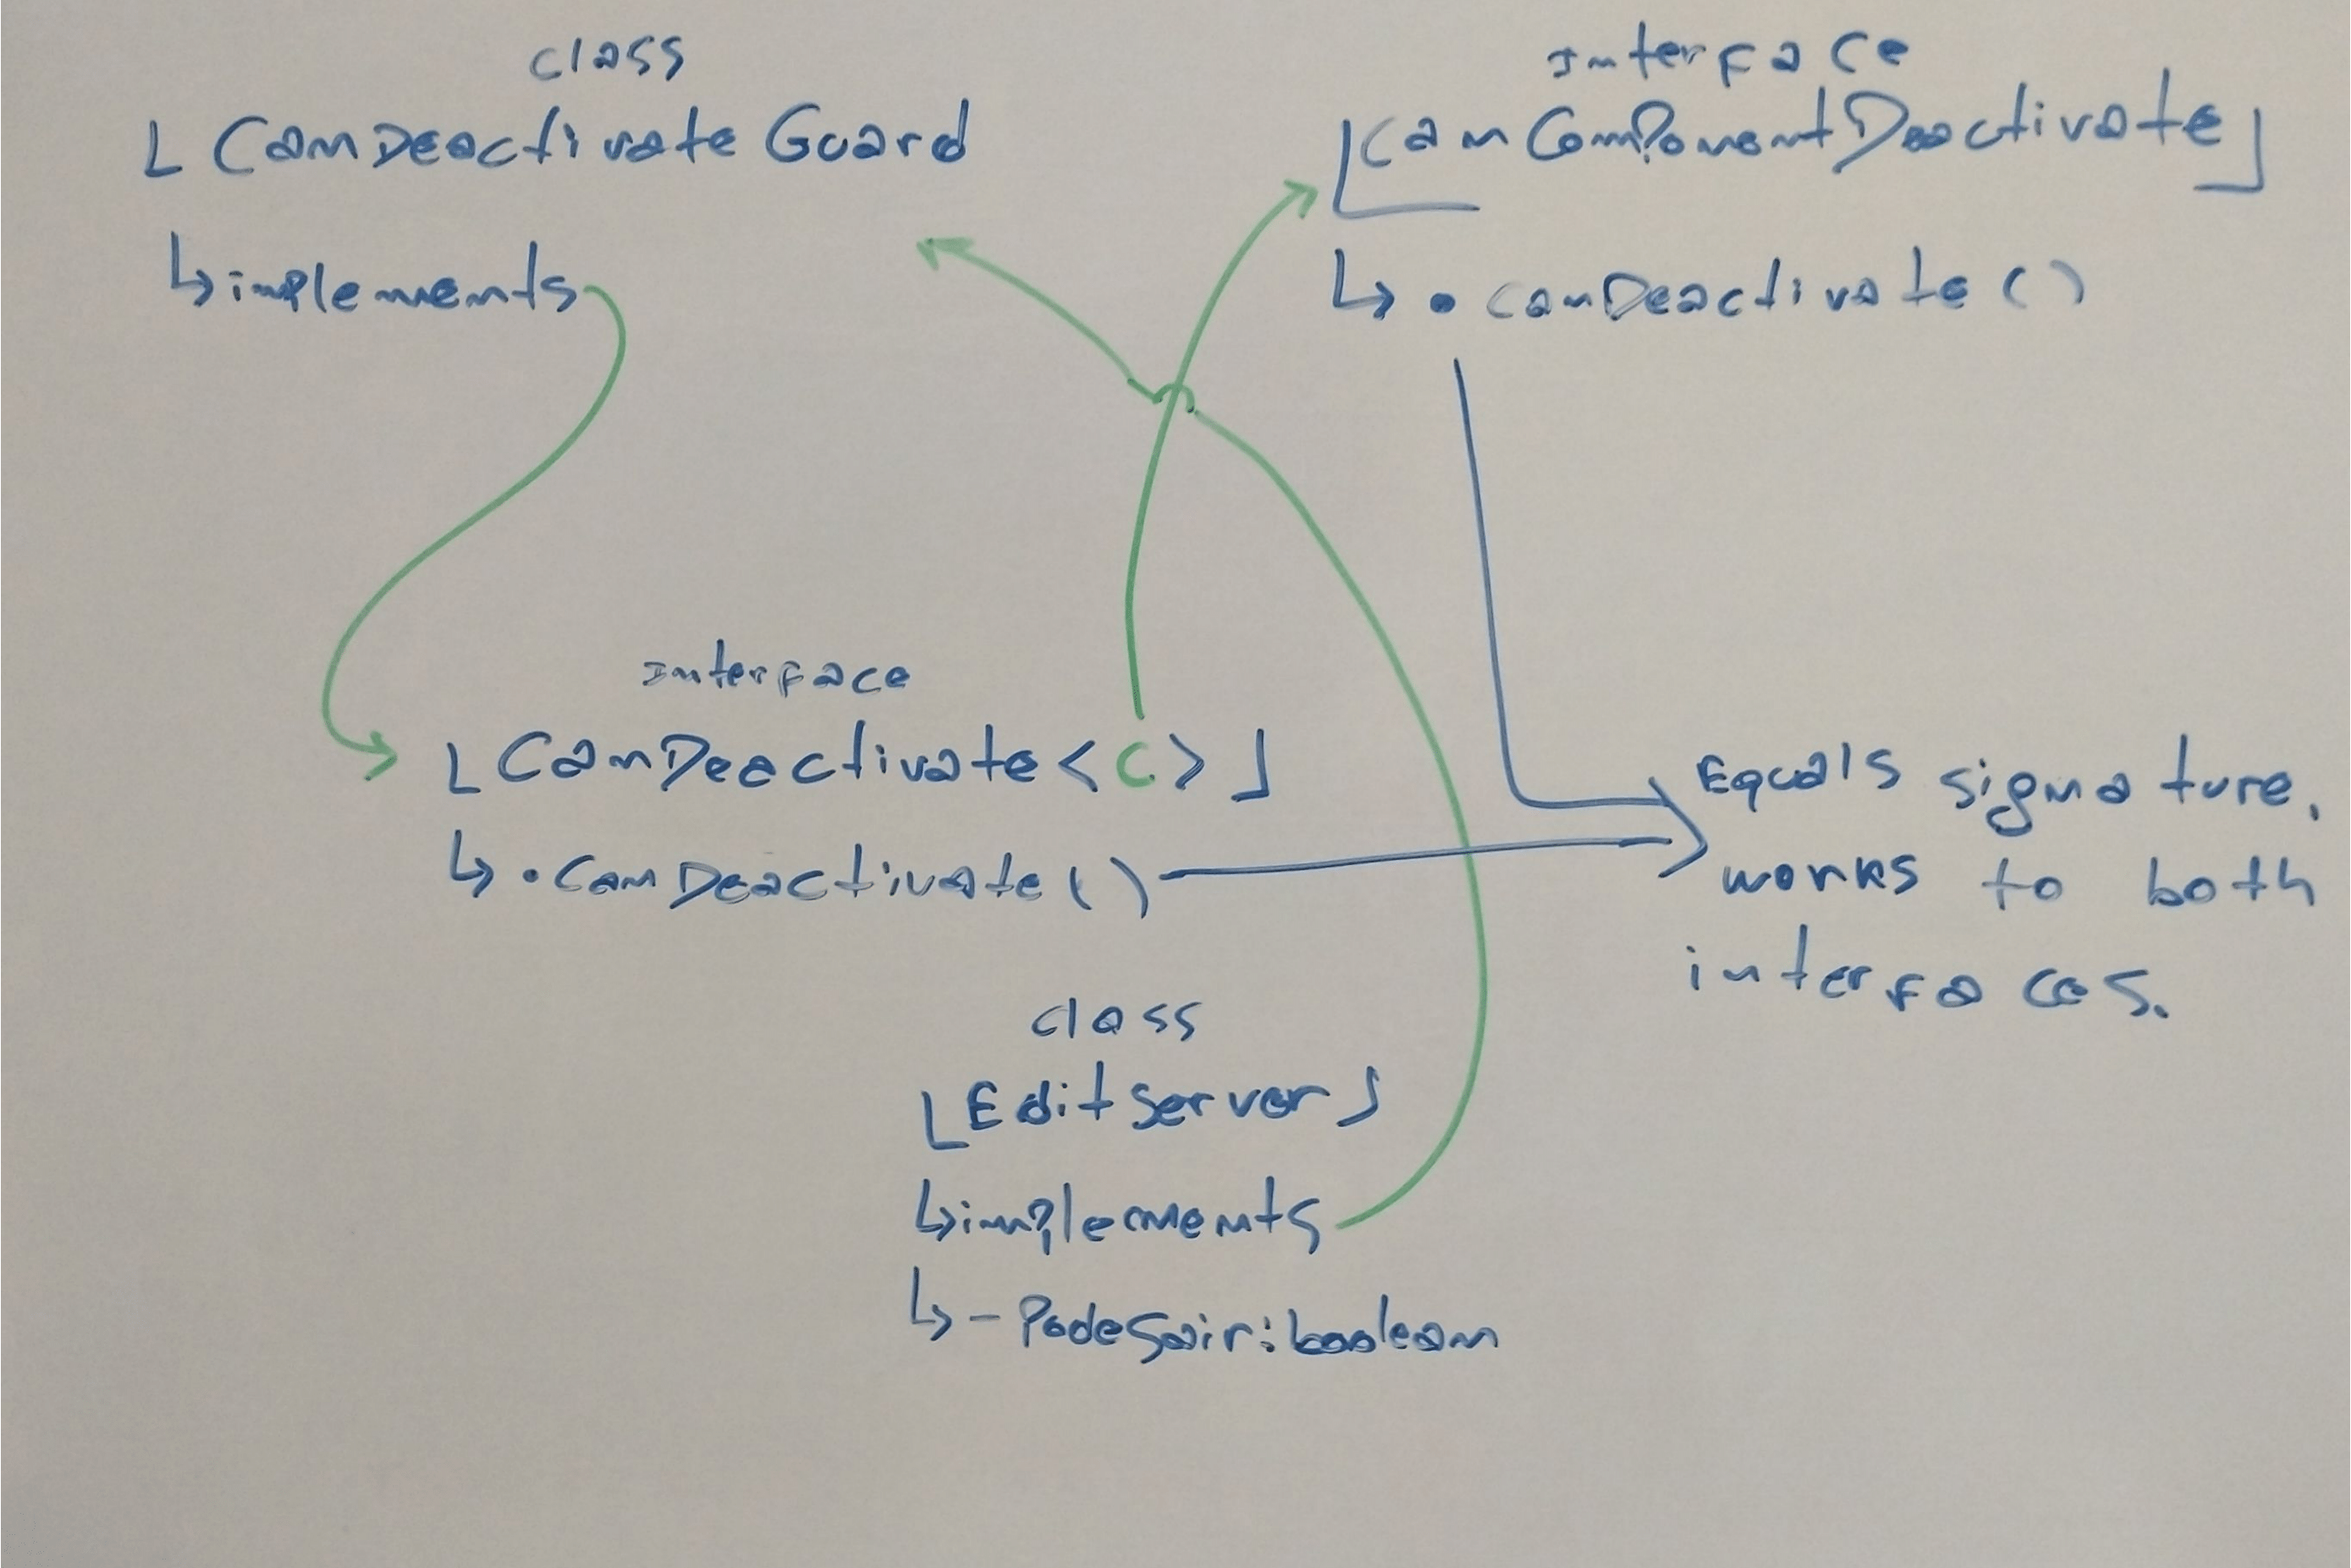 class
CanDeactivateGuard
implements
Interface
CanComponentDeactivate
• canDeactivate()
Interface
CanDeactivate<C>
• CanDeactivate()
Equals signature.
works to both
interfaces.
class
EditServer
implements
- PodeSair: boolean